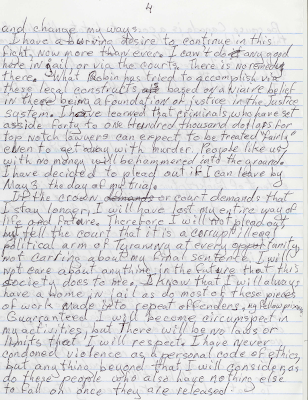 4
and change my ways.
I have a burning desire to continue in this
fight, now more than ever. I can't do any good
here in jail, or via the courts. There is no remedy
there. What Robin has tried to accomplish via
these legal constructs are based on a naive belief
in there being a foundation of justice in the Justice
system. I have learned that criminals who have set
asside forty to one hundred thousand dollars for
top notch lawyers can expect to be treated fairly
even to get away with murder. People like us
with no money will be hammered into the ground.
I have decided to plead out if I can leave by
May 3, the day of my trial.
If the crown demands or court demands that
I stay longer, I will have lost my entire way of
life and future. Therefore I will not plead out
but tell the court that it is a corrupt illegal
political arm of Tyranny at every opportunity
not carring about my final sentence. I will
not care about anything in the future that this
society does to me. I know that I will always
have a home in jail as do most of these pieces
of work crude into repeat offenders,
Guarranteed I will become circumspect in
my activities, but There will be no laws or
limits that I will respect. I have never
condoned violence as a personal code of ethics,
but anything beyond that I will consider, as
do these people who also have nothing else
to fall on once they are released.